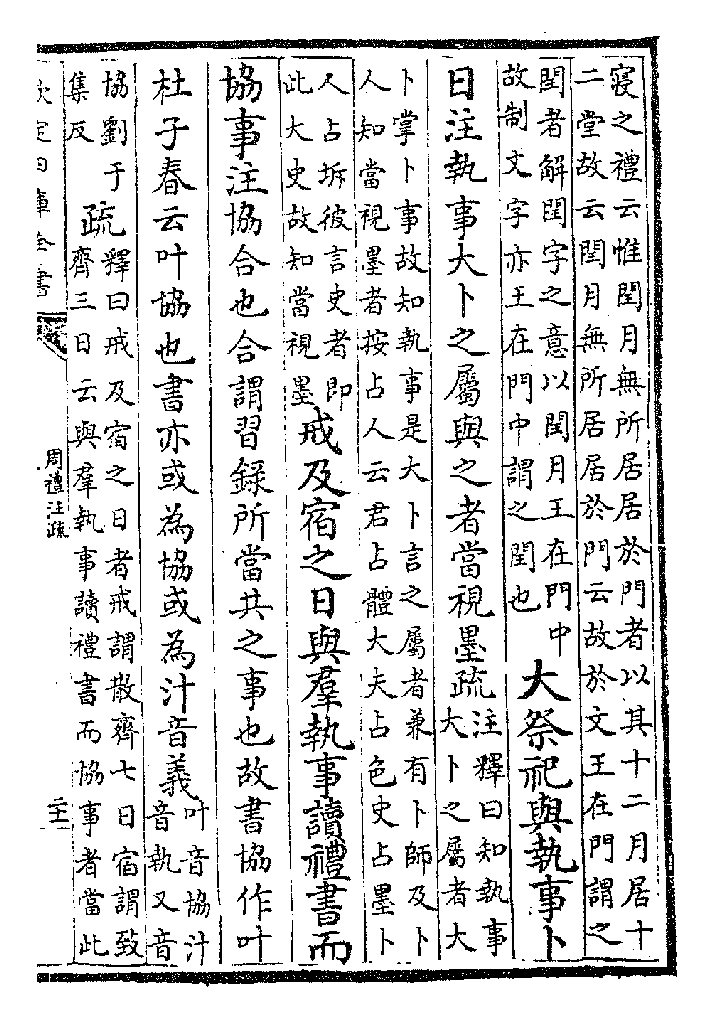 寢之禮云惟閏月無所居居於門者以其十二月居十
二堂故云閏月無所居居於門云故於文王在門謂之
閏者解閏字之意以閏月王在門中
故制文字亦王在門中謂之閏也
大祭祀與執事卜
日注執事大卜之屬與之者當視墨疏
注釋曰知執事
大卜之屬者大
卜掌卜事故知執事是大卜言之屬者兼有卜師及卜
人知當視墨者按占人云君占體大夫占色史占墨卜
人占坼彼言史者即
此大史故知當視墨
戒及宿之日與羣執事讀禮書而
協事注協合也合謂習錄所當共之事也故書協作叶
杜子春云叶協也書亦或為協或為汁音義
叶音協汁
音執又音
協劉于
集反
疏
釋曰戒及宿之日者戒謂散齊七日宿謂致
齊三日云與羣執事讀禮書而協事者當此
欽定四庫全書
周禮注疏